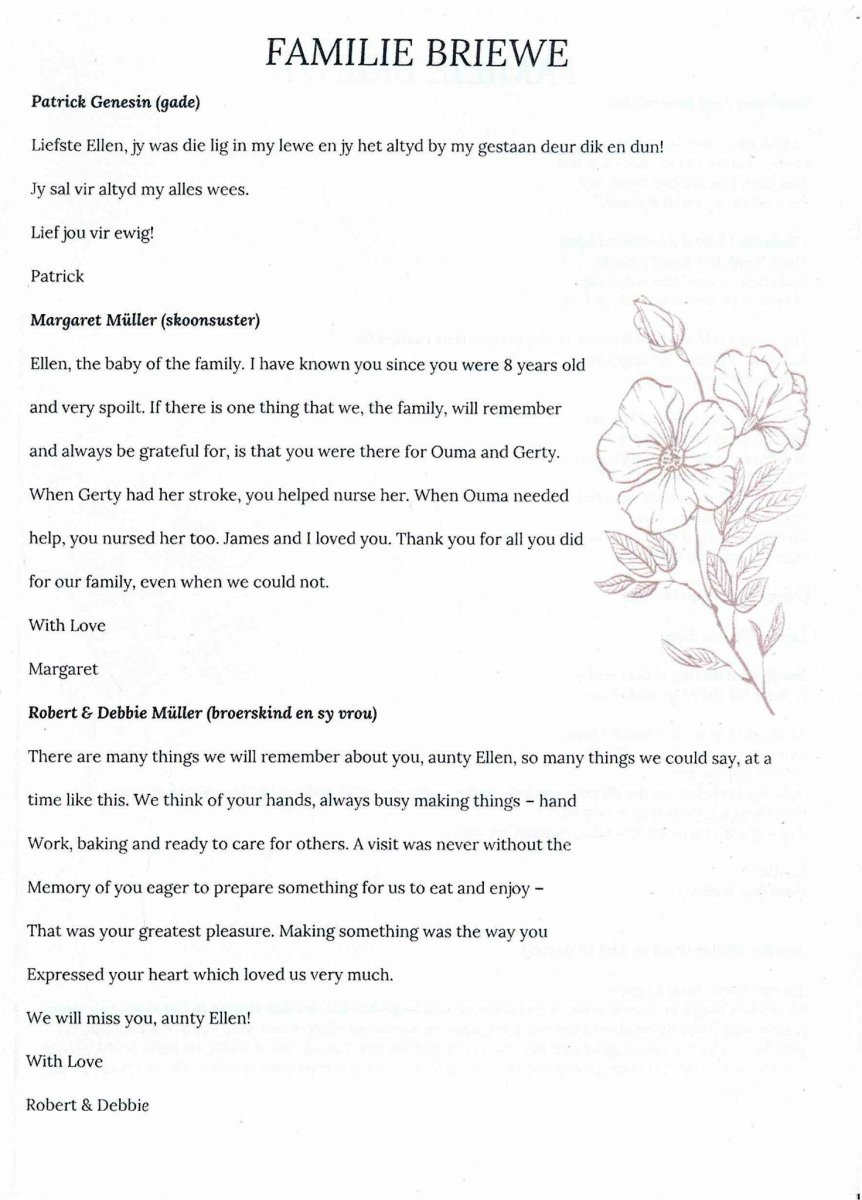 FAMILIE BRIEWE
Patrick Genesin (gade)
Liefste Ellen, jy was die lig in my lewe en jy het altyd by my gestaan deur dik en dun!
Jy sal vir altyd my alles wees.
Lief jou vir ewig!
Patrick
Margaret Müller (skoonsuster)
Ellen, the baby of the family. I have known you since you were 8 years old
and very spoilt. If there is one thing that we, the family, will remember
and always be grateful for, is that you were there for Ouma and Gerty.
When Gerty had her stroke, you helped nurse her. When Ouma needed
help, you nursed her too. James and I loved you. Thank you for all you did
for our family, even when we could not.
With Love
Margaret
Robert & Debbie Müller (broerskind en sy vrou)
There are many things we will remember about you, aunty Ellen, so many things we could say, at a
time like this. We think of your hands, always busy making things – hand
Work, baking and ready to care for others. A visit was never without the
Memory of you eager to prepare something for us to eat and enjoy –
That was your greatest pleasure. Making something was the way you
Expressed your heart which loved us very much.
We will miss you, aunty Ellen!
With Love
Robert & Debbie